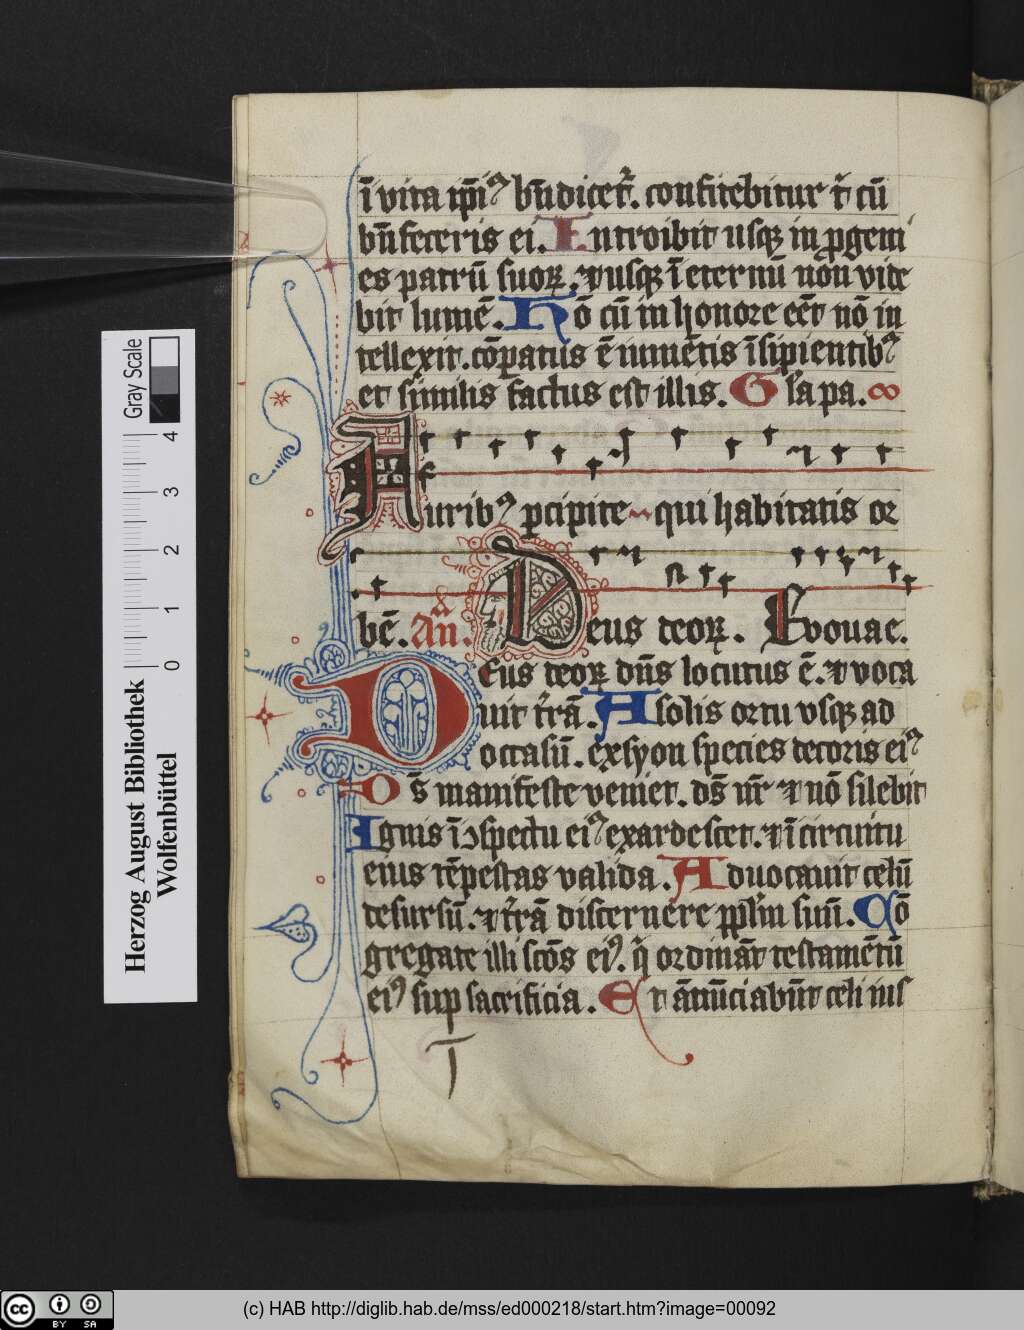 ī vita ip̄iꝰ bn̄dicet᷑. confitebitur t᷑ cū
bn̄feceris ei. Introibit usqꝫ in ꝓgeni
es patrū suoꝝ. ⁊ usqꝫ ī eternū non vide
bit lumē. Hō cū in honore eēt nō in
tellexit. cōpatus ē iumētis īsipientibꝰ
et similis factus est illis. Gl̄a pa.
Auribꝰ ꝑcipite qui habitatis or
bē. An̄. Deus deoꝝ. Evouae.
Deus deoꝝ dn̄s locutus ē. ⁊ voca
uit t᷑rā. A solis ortu vsqꝫ ad
occasū. ex syon species decoris eiꝰ
Ds̄ manifeste veniet. ds̄ nr̄ ⁊ nō silebit
Ignis ī ↄspectu eiꝰ exardescet. ⁊ ī circuitu
eius tēpestas valida. Aduocauit celū
desursū. ⁊ t᷑rā discernere pp̄lm̄ suū. Cō
gregate illi scōs eiꝰ. q̄ ordināt testamētū
eiꝰ suꝑ sacrificia. Et ānūciabūt celi ius
T
Herzog August Bibliothek
Wolfenbüttel
0 1 2 3 4
Gray Scale
cc BY SA
(c) HAB http://diglib.hab.de/mss/ed000218/start.htm?image=00092